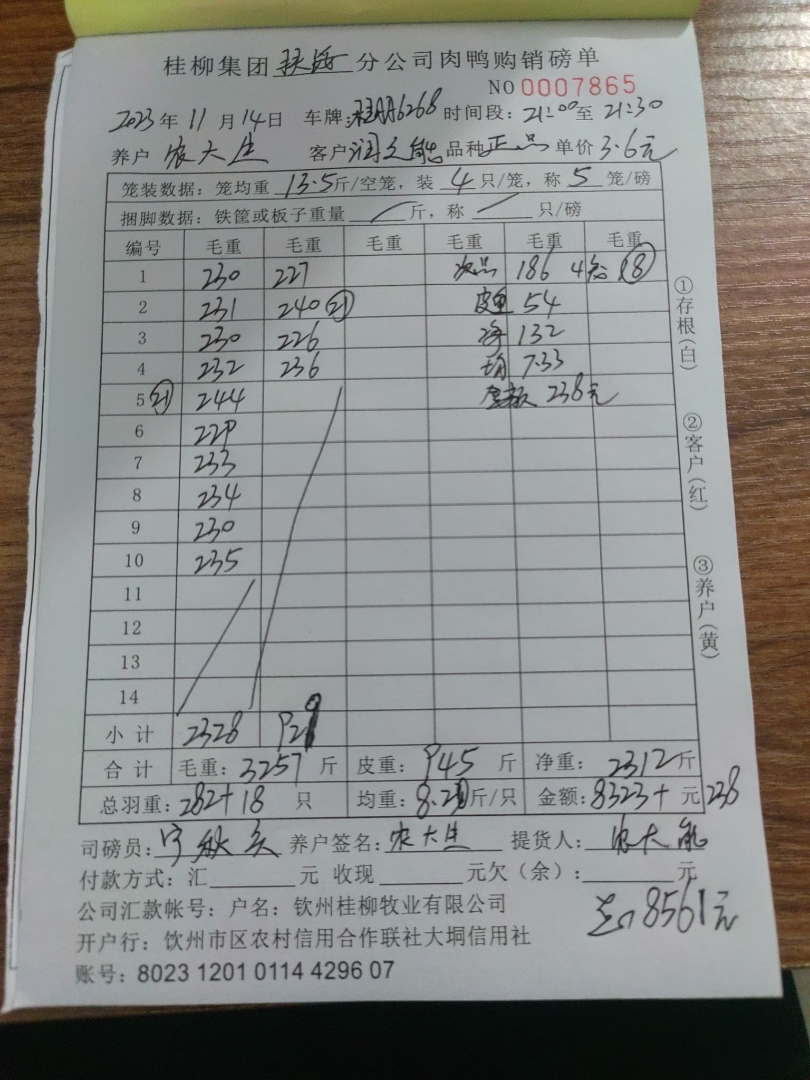 桂柳集团 分公司肉鸭购销磅单
NO 0007865
2023年11月14日 车牌: 6268 时间段: 21:00至 21:30
养户 农大生 客户 品种 正品 单价 3.6元
笼装数据: 笼均重 13.5斤/空笼, 装 4 只/笼, 称 5 笼/磅
捆脚数据: 铁筐或板子重量 斤, 称 只/磅
编号 毛重 毛重 毛重 毛重 毛重 毛重
1 230 227 次品 186 4 18
2 231 240 21 皮重 54
3 230 226 净 132
4 232 236 均 7.33
5 21 244 金额 238元
6 229
7 233
8 234
9 230
10 235
11
12
13
14
小计 2328 929
合计 毛重: 3257 斤 皮重: 945 斤 净重: 2312斤
总羽重: 282+18 只 均重: 8.2 斤/只 金额: 8323+ 元 238
司磅员: 养户签名: 农大生 提货人:
付款方式: 汇 元 收现 元欠(余): 元
公司汇款帐号: 户名: 钦州桂柳牧业有限公司 8561元
开户行: 饮州市区农村信用合作联社大垌信用社
账号: 8023 1201 0114 4296 07
①存根(白)
②客户(红)
③养户(黄)